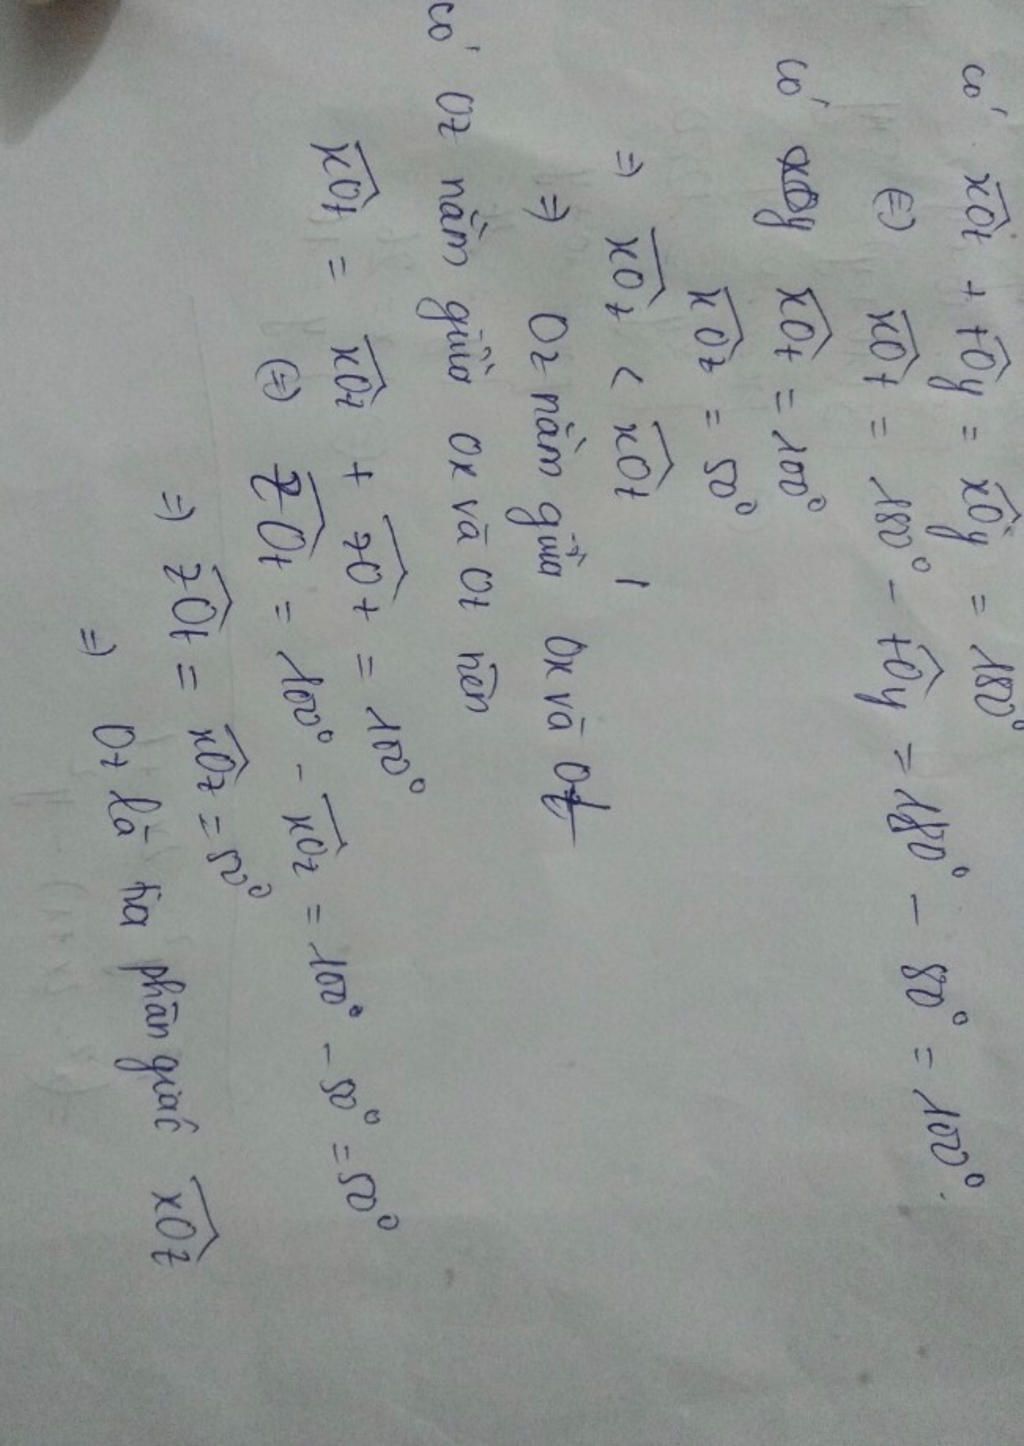 có xOt + tOy = xOy = 180°
(=) xOt = 180° - tOy = 180° - 80° = 100°.
có xOt = 100°
xOz = 50°
=) xOz < xOt
=) Oz nằm giữa Ox và Ot
có Oz nằm giữa Ox và Ot nên
xOt = xOz + zOt = 100°
(=) zOt = 100° - xOz = 100° - 50° = 50°
=) zOt = xOz = 50°
=) Oz là tia phân giác xOz